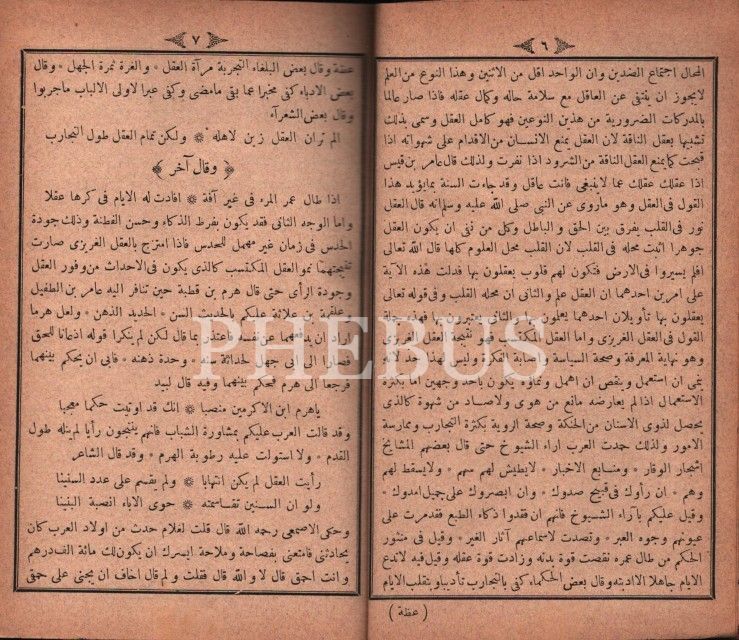 ٦
المحال اجتماع الضدين وان الواحد اقل من الاثنين وهذا النوع من العلم
لا يجوز ان ينتفى عن العاقل مع سلامة حاله وكمال عقله فاذا صار عالما
بالمدركات الضرورية من هذين النوعين فهو كامل العقل وسمى بذلك
تشبيها بعقل الناقة لان العقل يمنع الانسان من الاقدام على شهواته اذا
قبحت كما يمنع العقل الناقة من الشرود اذا نفرت ولذلك قال عامر بن قيس
اذا عقلك عقلك عما لا ينبغى فانت عاقل وقد جاءت السنة بما يؤيد هذا
القول فى العقل وهو ماروى عن النبى صلى الله عليه وسلم انه قال العقل
نور فى القلب يفرق بين الحق و الباطل وكل من نفى ان يكون العقل
جوهرا اثبت محله فى القلب لان القلب محل العلوم كلها قال الله تعالى
افلم يسيروا فى الارض فتكون لهم قلوب يعقلون بها فدلت هذه الآية
على امرين احدهما ان العقل علم والثانى ان محله القلب وفى قوله تعالى
يعقلون بها تأويلان احدهما يعلمون بها والثانى يعتبرون بها فهذه جملة
القول فى العقل الغريزى واما العقل المكتسب فهو نتيجة العقل الغريزى
وهو نهاية المعرفة وصحة السياسة واصابة الفكرة وليس لهذا حد لانه
ينمى ان استعمل وينقص ان اهمل ونماؤه يكون باحد وجهين اما بكثرة
الاستعمال اذا لم يعارضه مانع من هوى ولا صاد من شهوة كالذى
يحصل لذوى الاسنان من الحنكة وصحة الروية بكثرة التجارب وممارسة
الامور ولذلك حمدت العرب اراء الشيوخ حتى قال بعضهم المشايخ
اشجار الوقار * ومنابع الاخبار * لا يطيش لهم سهم * ولا يسقط لهم
وهم * ان رأوك فى قبيح صدوك * وان ابصروك على جميل امدوك *
وقيل عليكم بآراء الشيوخ فانهم ان فقدوا ذكاء الطبع فقد مرت على
عيونهم وجوه العبر * وتصدت لاسماعهم آثار الغير * وقيل فى منثور
الحكم من طال عمره نقصت قوة بدنه وزادت قوة عقله وقيل فيه لا تدع
الايام جاهلا الا ادبته وقال بعض الحكماء كفى بالتجارب تأديبا وبتقلب الايام
( عظة )
٧
عظة وقال بعض البلغاء التجربة مرآة العقل * والغرة ثمرة الجهل * وقال
بعض الادباء كفى مخبرا عما بقى مامضى وكفى عبرا لاولى الالباب ماجربوا
وقال بعض الشعرآء
الم تران العقل زين لاهله * ولكن تمام العقل طول التجارب
﴿ وقال آخر ﴾
اذا طال عمر المرء فى غير آفة * افادت له الايام فى كرها عقلا
واما الوجه الثانى فقد يكون بفرط الذكاء وحسن الفطنة وذلك جودة
الحدس فى زمان غير مهمل للحدس فاذا امتزج بالعقل الغريزى صارت
نتيجتهما نمو العقل المكتسب كالذى يكون فى الاحداث من وفور العقل
وجودة الرأى حتى قال هرم بن قطبة حين تنافر اليه عامر بن الطفيل
وعلقمة بن علاثة عليكم بالحديث السن * الحديد الذهن * ولعل هرما
اراد ان يدفعهما عن نفسه فاعتذر بما قال لكن لم ينكرا قوله اذعانا للحق
فصارا الى ابى جهل لحداثة سنه * وحدة ذهنه * فابى ان يحكم بينهما
فرجعا الى هرم فحكم بينهما وفيه قال لبيد
ياهرم ابن الاكرمين منصبا * انك قد اوتيت حكما معجبا
وقد قالت العرب عليكم بمشاورة الشباب فانهم ينتجون رأيا لم ينله طول
القدم * ولا استولت عليه رطوبة الهرم * وقد قال الشاعر
رأيت العقل لم يكن انتهابا * ولم يقسم على عدد السنينا
ولو ان السنين تقاسمته * حوى الاباء انصبة البنينا
وحكى الاصمعى رحمه الله قال قلت لغلام حدث من اولاد العرب كان
يحادثنى فامتعنى بفصاحة وملاحة ايسرك ان يكون لك مائة الف درهم
وانت احمق قال لا والله قال فقلت ولم قال اخاف ان يجنى على حمق
PHEBUS